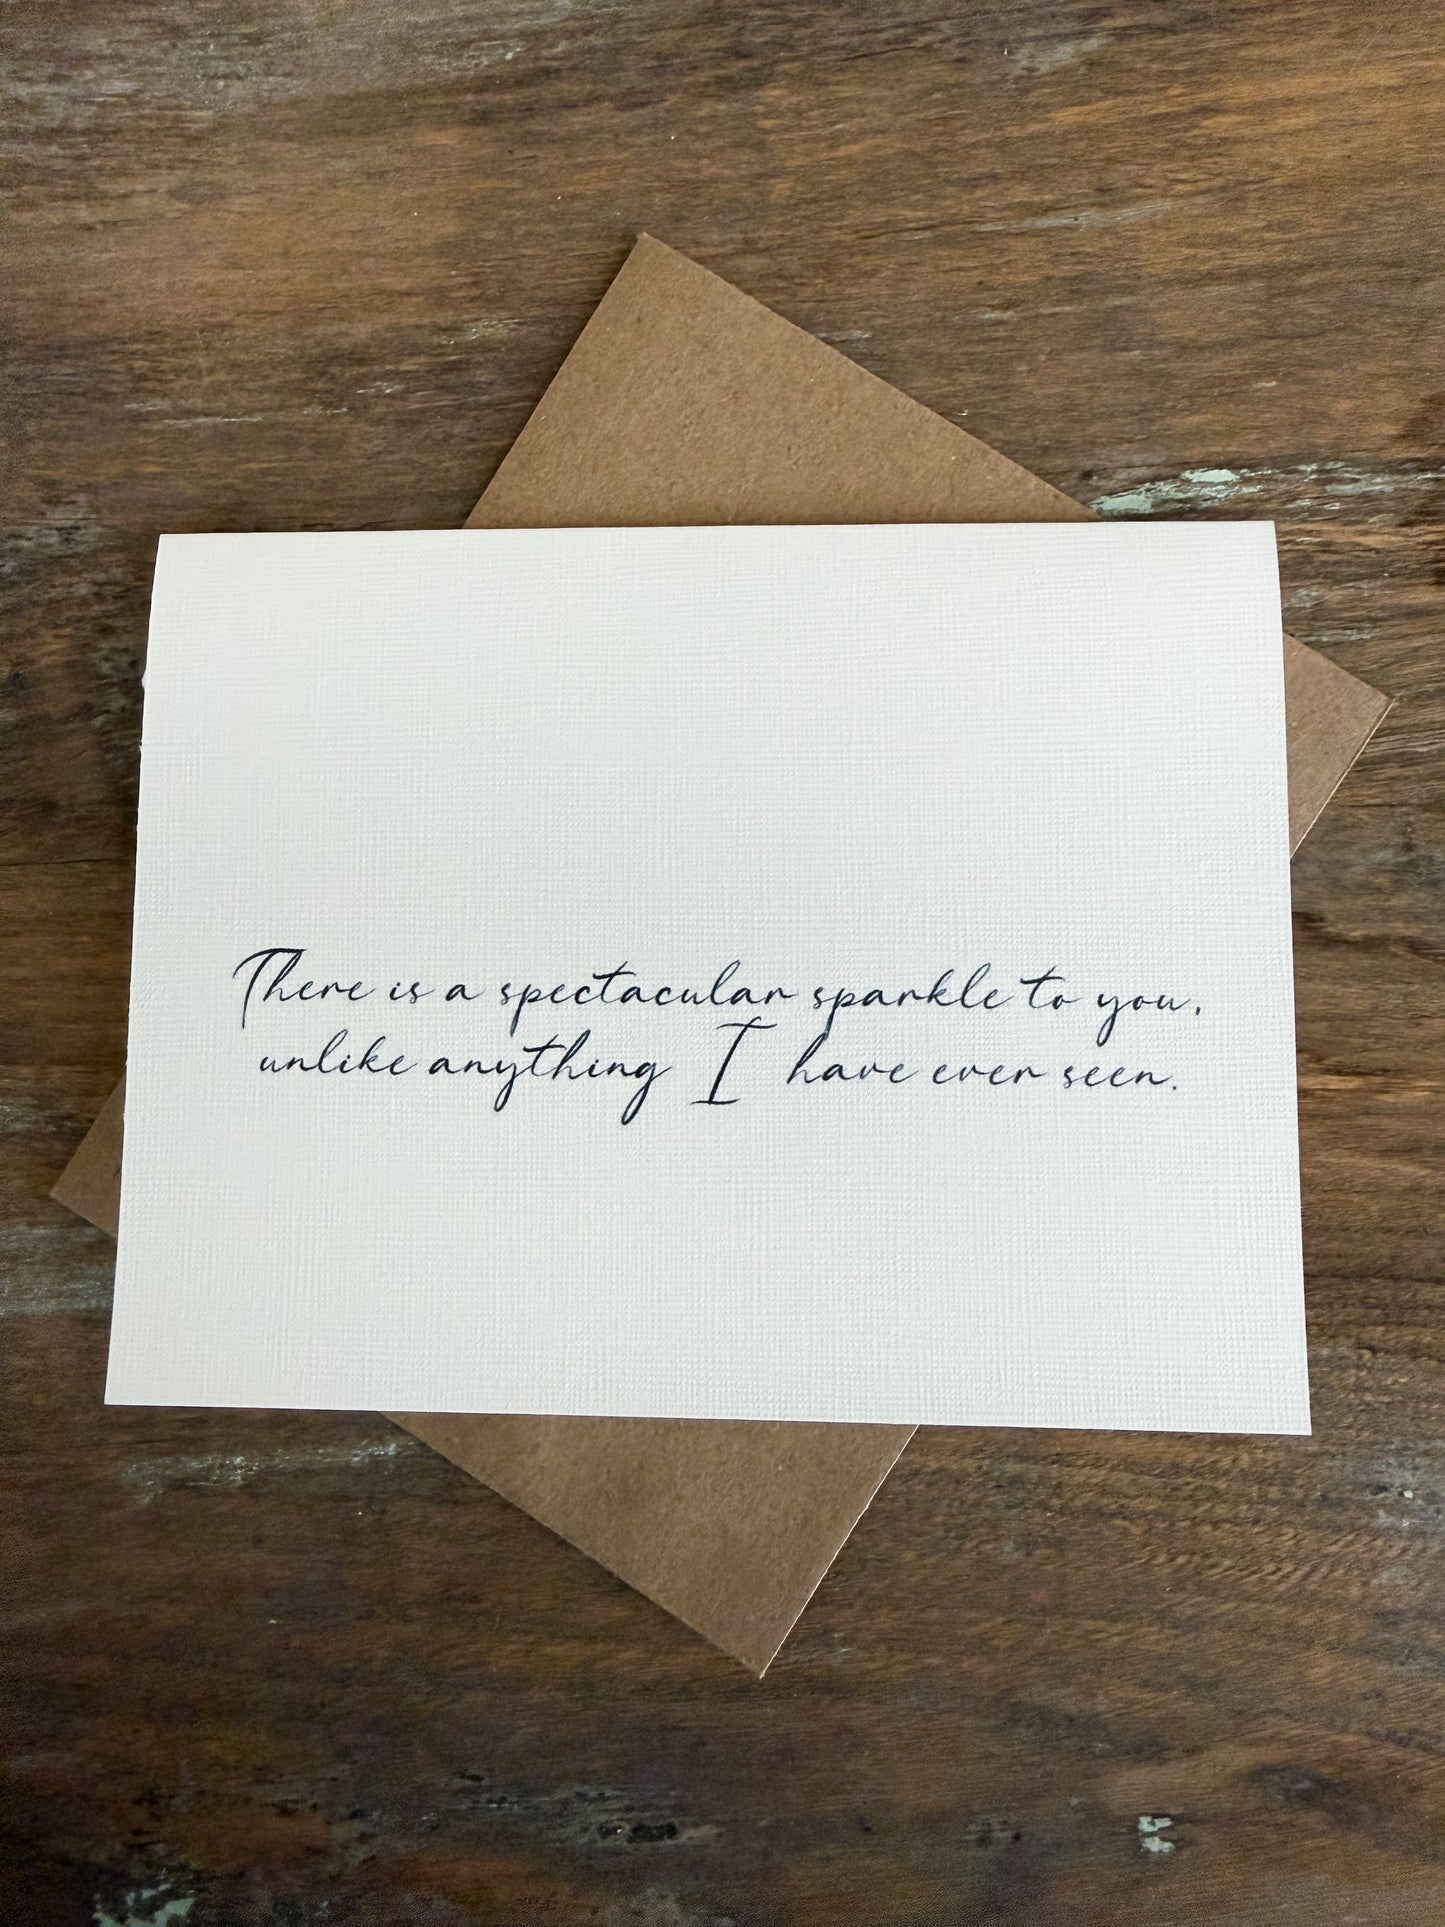 There is a spectacular sparkle to you,
unlike anything I have ever seen.